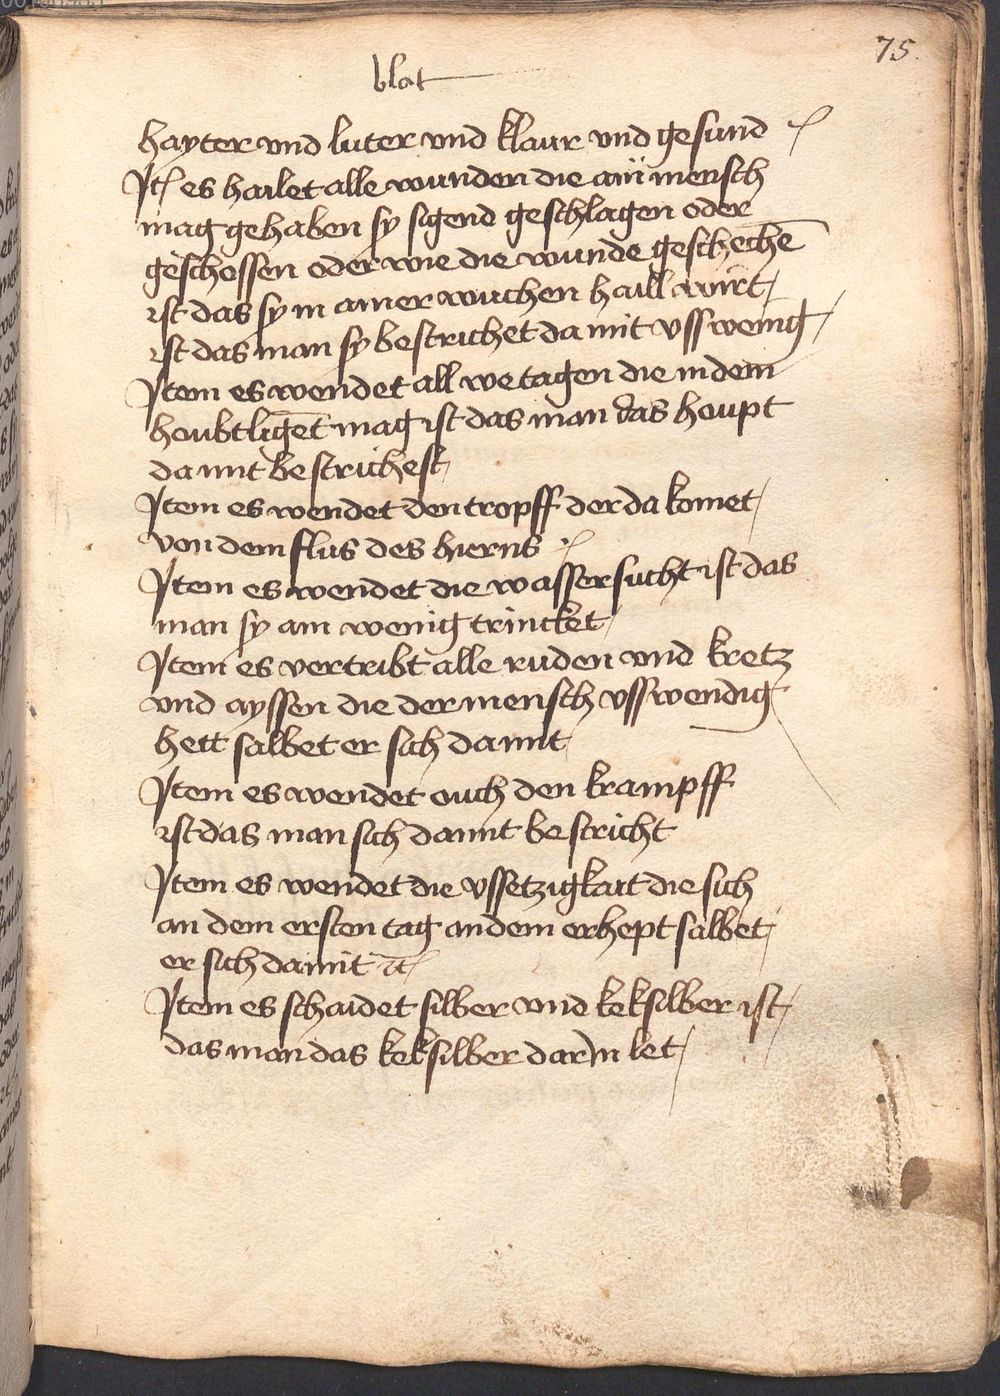 75.
blat
hayter vnd luter vnd klaur vnd gesund
Jt es hailet alle wunden die ain mensch
mag gehaben sy sigend geschlagen oder
geschossen oder wie die wunde geschechē
ist das sy in ainer wuchen haill wirt
ist das man sy bestrichet da mit vsswenig
Jtem es wendet all wetagen die in dem
houbt ligēt mag ist das man das houpt
da mit bestrichest
Jtem es wendet den tropff der da komet
von dem flus des hierns
Jtem es wendet die wassersucht ist das
man sy ain wenig trincket
Jtem es vertribt alle ruden vnd kretz
vnd ayssen die der mensch vsswendig
hett salbet er sich da mit
Jtem es wendet ouch den krampff
ist das man sich da mit bestricht
Jtem es wendet die vssetzigkait die sich
an dem ersten tag an dem erhept salbet
er sich da mit
Jtem es schaidet silber vnd keksilber ist
das man das keksilber dar in let